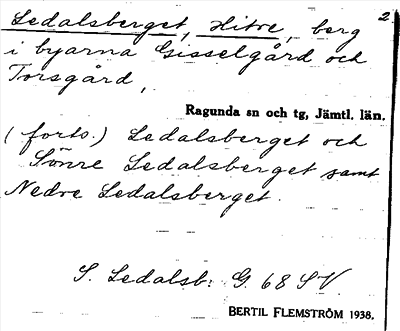 Ledalsberget, Hitre, berg 2
i byarna Gisselgård och
Torsgård,
Ragunda sn och tg, Jämtl. län.
(forts.) Ledalsberget och
Sönre Ledalsberget samt
Nedre Ledalsberget.
S. Ledalsb: G. 68 SV
BERTIL FLEMSTRÖM 1938.